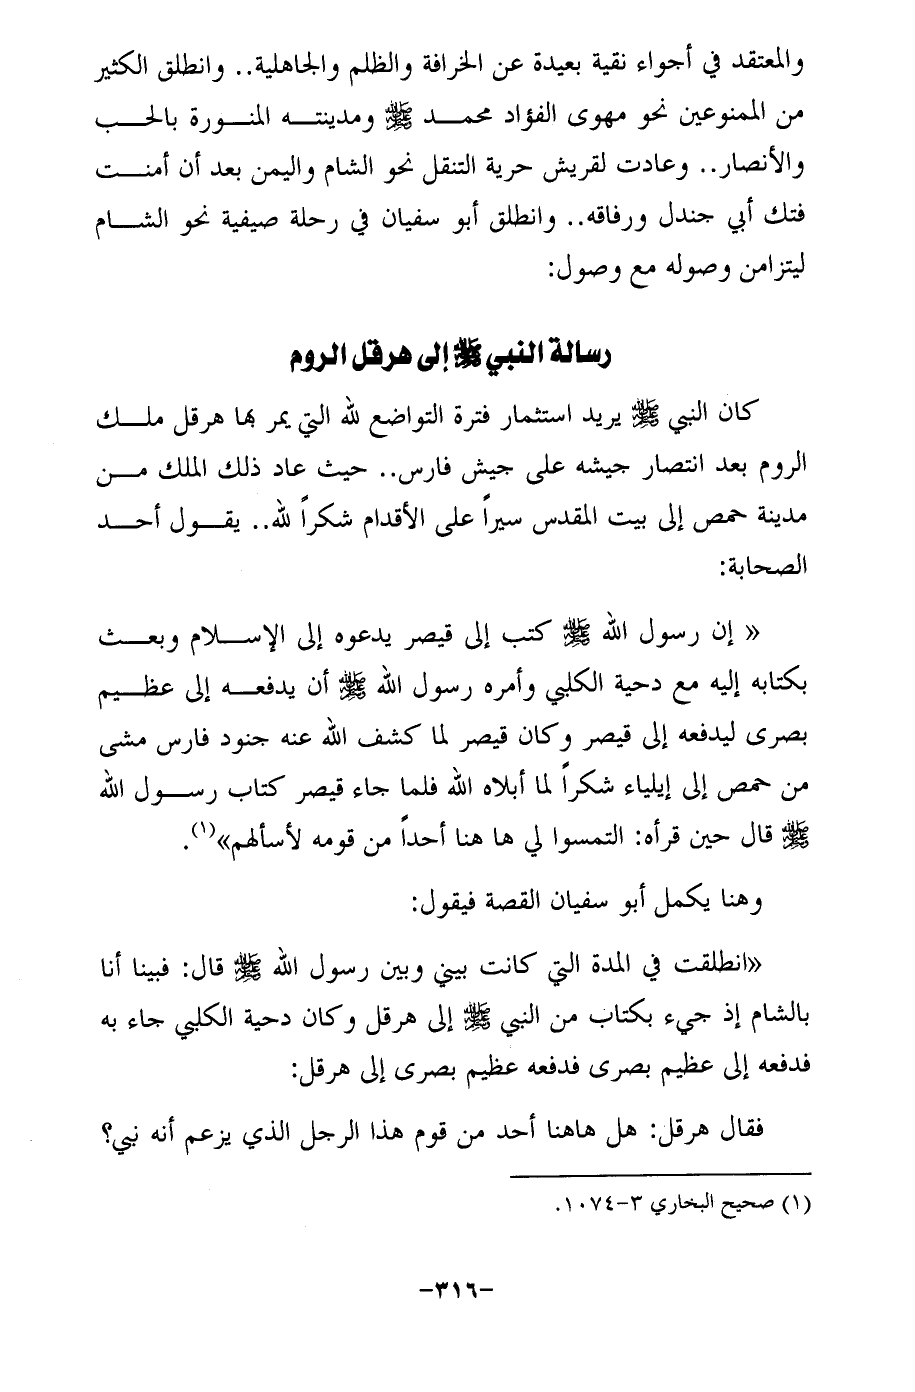 والمعتقد في أجواء نقية بعيدة عن الخرافة والظلم والجاهلية.. وانطلق الكثير
من الممنوعين نحو مهوى الفؤاد محمد ﷺ ومدينته المنورة بالحب
والأنصار.. وعادت لقريش حرية التنقل نحو الشام واليمن بعد أن أمنت
فتك أبي جندل ورفاقه.. وانطلق أبو سفيان في رحلة صيفية نحو الشام
ليتزامن وصوله مع وصول:
رسالة النبي ﷺ إلى هرقل الروم
كان النبي ﷺ يريد استثمار فترة التواضع لله التي يمر بها هرقل ملك
الروم بعد انتصار جيشه على جيش فارس.. حيث عاد ذلك الملك من
مدينة حمص إلى بيت المقدس سيراً على الأقدام شكراً لله.. يقول أحد
الصحابة:
« إن رسول الله ﷺ كتب إلى قيصر يدعوه إلى الإسلام وبعث
بكتابه إليه مع دحية الكلبي وأمره رسول الله ﷺ أن يدفعه إلى عظيم
بصرى ليدفعه إلى قيصر وكان قيصر لما كشف الله عنه جنود فارس مشى
من حمص إلى إيلياء شكراً لما أبلاه الله فلما جاء قيصر كتاب رسول الله
ﷺ قال حين قرأه: التمسوا لي ها هنا أحداً من قومه لأسألهم»(١).
وهنا يكمل أبو سفيان القصة فيقول:
«انطلقت في المدة التي كانت بيني وبين رسول الله ﷺ قال: فبينا أنا
بالشام إذ جيء بكتاب من النبي ﷺ إلى هرقل وكان دحية الكلبي جاء به
فدفعه إلى عظيم بصرى فدفعه عظيم بصرى إلى هرقل:
فقال هرقل: هل هاهنا أحد من قوم هذا الرجل الذي يزعم أنه نبي؟
(١) صحيح البخاري ٣-١٠٧٤.
-٣١٦-